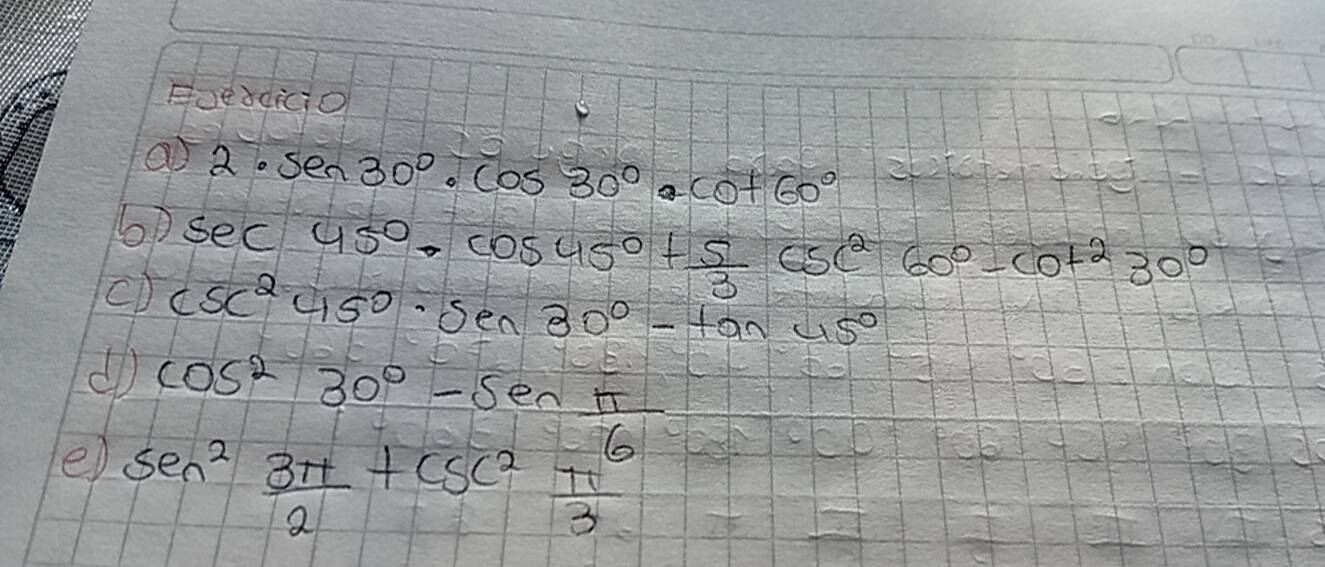 Ejercicio
a) 2 · sen 30° · cos 30° · cot 60°
b) sec 45° · cos 45° + 5/3 csc² 60° - cot² 30°
c) csc² 45° · sen 30° - tan 45°
d) cos² 30° - sen π/6
e) sen² 3π/2 + csc² π/3